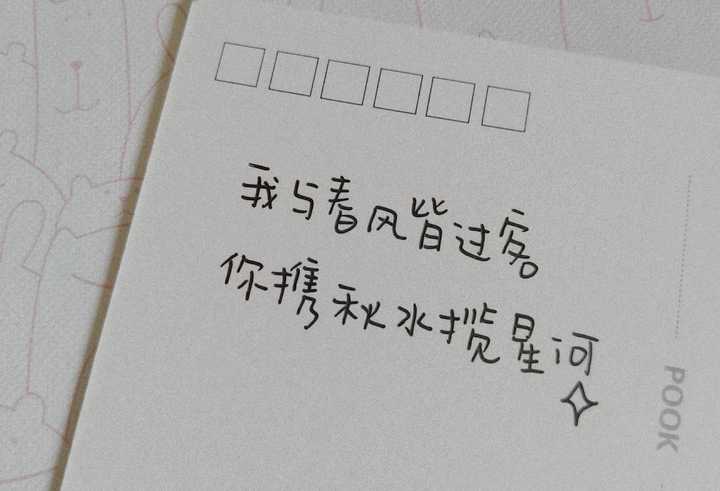 我与春风皆过客
你携秋水揽星河
POOK